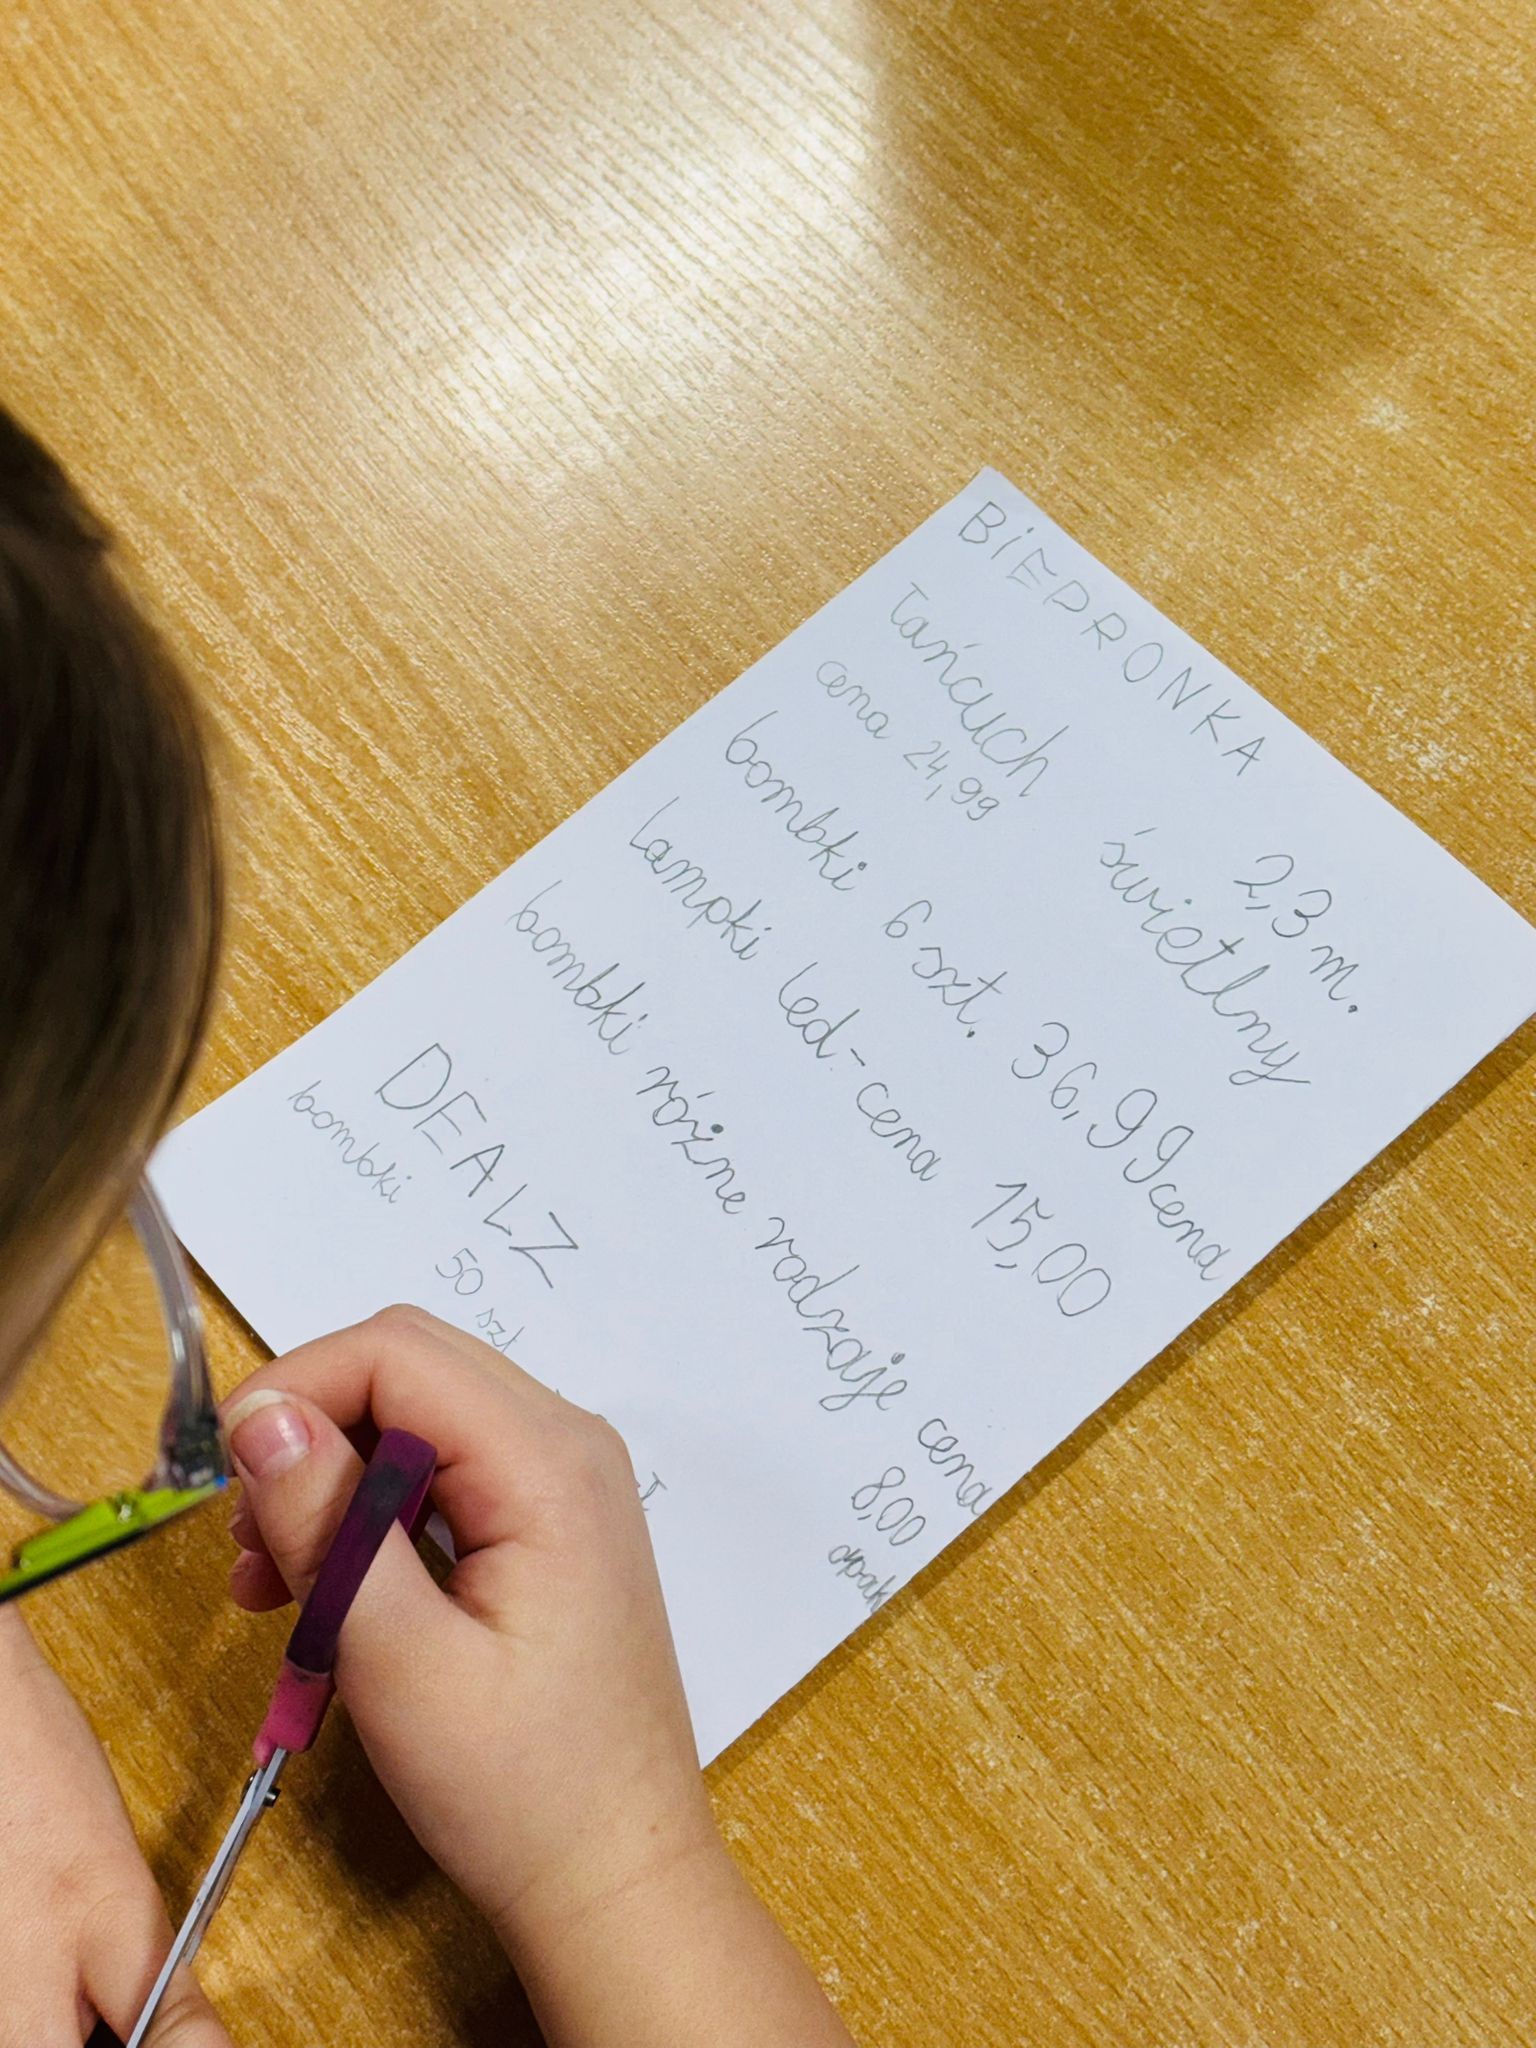 BIEDRONKA
2,3 m.
Łańcuch świetlny
cena 24,99
bombki 6 szt. 36,99 cena
Lampki led - cena 15,00
bombki różne rodzaje cena
8,00
opak
DEALZ
bombki 50 szt